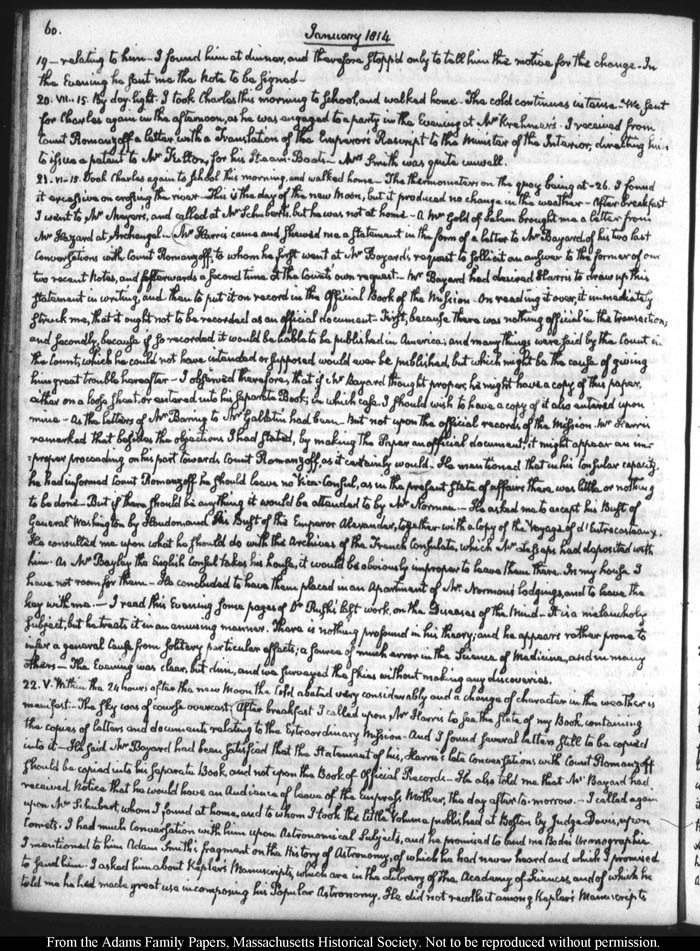 60.
January 1814
19 — relating to him — I found him at dinner, and therefore stopp'd only to tell him the motive for the change — In
the Evening he sent me the Note to be signed —
20. VII-15. By day-light. I took Charles this morning to School, and walked home — The cold continues intense — We sent
for Charles again in the afternoon, as he was engaged to a party in the Evening at Mr Krehmer's — I received from
Count Romanzoff a letter with a Translation of the Emperor's Rescript to the Minister of the Interior, directing him
to issue a patent to Mr Fulton, for his Steam-Boats — Mrs Smith was quite unwell.
21. VI-15. Took Charles again to School this morning, and walked home — The thermometers on the quay being at -26. I found
it excessive on crossing the river — This is the day of the new Moon, but it produced no change in the weather — After breakfast
I went to Mr Meyer's, and called at Mr Schubert's, but he was not at home — A Mr Gold of Salem brought me a letter from
Mr Hazard at Archangel — Mr Harris came and shewed me a statement in the form of a letter to Mr Bayard of his two last
Conversations with Count Romanzoff, to whom he first went at Mr Bayard's request to sollicit an answer to the former of our
two recent Notes, and afterwards a second time at the Count's own request — Mr Bayard had desired Harris to draw up this
statement in writing, and then to put it on record in the Official Book of the Mission — On reading it over, it immediately
struck me, that it ought not to be recorded as an official document — First, because there was nothing official in the transaction,
and secondly, because if so recorded it would be liable to be published in America; and many things were said by the Count in
the Count, which he could not have intended or supposed would ever be published, but which might be the cause of giving
him great trouble hereafter — I observed therefore, that if Mr Bayard thought proper, he might have a copy of this paper,
either on a loose sheet, or entered into his separate Book; in which case I should wish to have a copy of it also entered upon
mine — As the letters of Mr Baring to Mr Gallatin had been — But not upon the official records of the Mission — Mr Harris
remarked that besides the objections I had stated, by making the Paper an official document, it might appear an im-
proper proceeding on his part towards Count Romanzoff, as it certainly would. He mentioned that in his Consular capacity
he had informed Count Romanzoff he should leave no Vice-Consul, as in the present state of affairs there was little or nothing
to be done — But if there should be anything it would be attended to by Mr Norman — He asked me to accept his Bust of
General Washington by Houdon, and the Bust of the Emperor Alexander, together with a Copy of the Voyage of d'Entrecasteaux.
He consulted me upon what he should do with the Archives of the French Consulate, which Mr Lesseps had deposited with
him. As Mr Bayley the English Consul takes his house, it would be obviously improper to leave them there. In my house I
have not room for them — He concluded to have them placed in an Apartment of Mr. Norman's lodgings, and to leave the
key with me. — I read this Evening some pages of Dr Rush's last work, on the Diseases of the Mind — It is a melancholy
subject, but he treats it in an amusing manner. There is nothing profound in his theory, and he appears rather prone to
infer a general cause from solitary particular effects; a source of much error in the Science of Medicine, and in many
others — The Evening was clear, but dim, and we surveyed the skies without making any discoveries.
22. V. Within the 24 hours after the new Moon the Cold abated very considerably and a change of character in the weather is
manifest — The sky was of course overcast. After breakfast I called upon Mr Harris to see the state of my Book containing
the copies of letters and documents relating to the Extraordinary Mission — And I found several letters still to be copied
into it — He said Mr Bayard had been satisfied that the Statement of his, Harris's late Conversations with Count Romanzoff
should be copied into his separate Book, and not upon the Book of Official Records — He also told me that Mr Bayard had
received Notice that he would have an Audience of leave of the Empress Mother, the day after to-morrow. — I called again
upon Mr Schubert, whom I found at home, and to whom I took the little Volume published at Boston by Judge Davis, upon
Comets. I had much Conversation with him upon Astronomical Subjects, and he promised to lend me Bode's Uranographia
I mentioned to him Adam Smith's fragment on the History of Astronomy, of which he had never heard and which I promised
to send him. I asked him about Kepler's Manuscripts, which are in the library of the Academy of Sciences, and of which he
told me he had made great use in composing his Popular Astronomy. He did not recollect among Kepler's Manuscripts
From the Adams Family Papers, Massachusetts Historical Society. Not to be reproduced without permission.